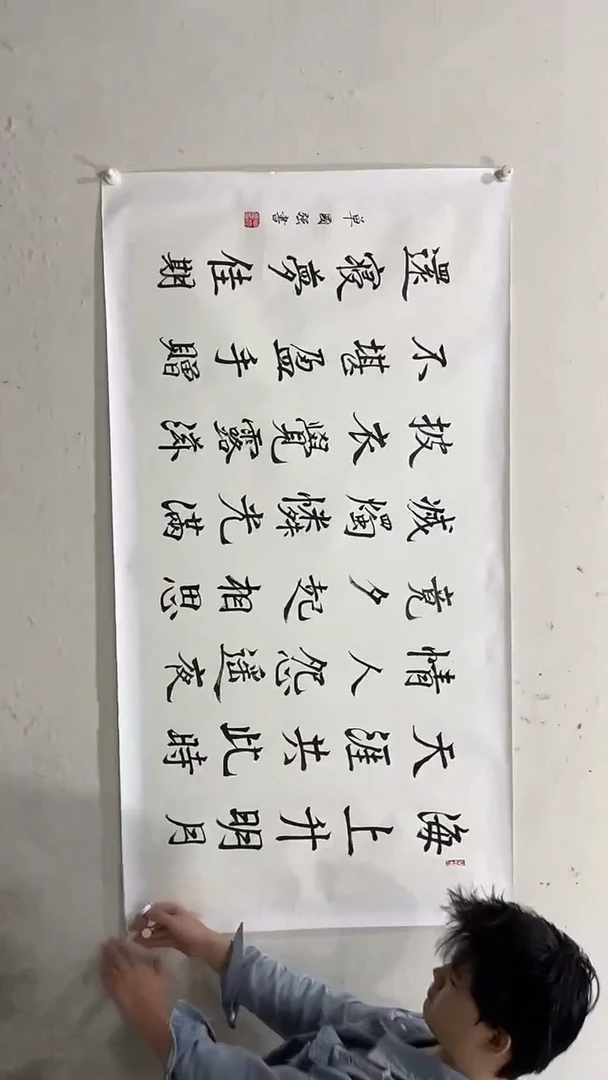 海上升明月
天涯共此時
情人怨遥夜
竟夕起相思
滅燭憐光滿
披衣覺露滋
不堪盈手贈
還寝夢佳期
单國强書